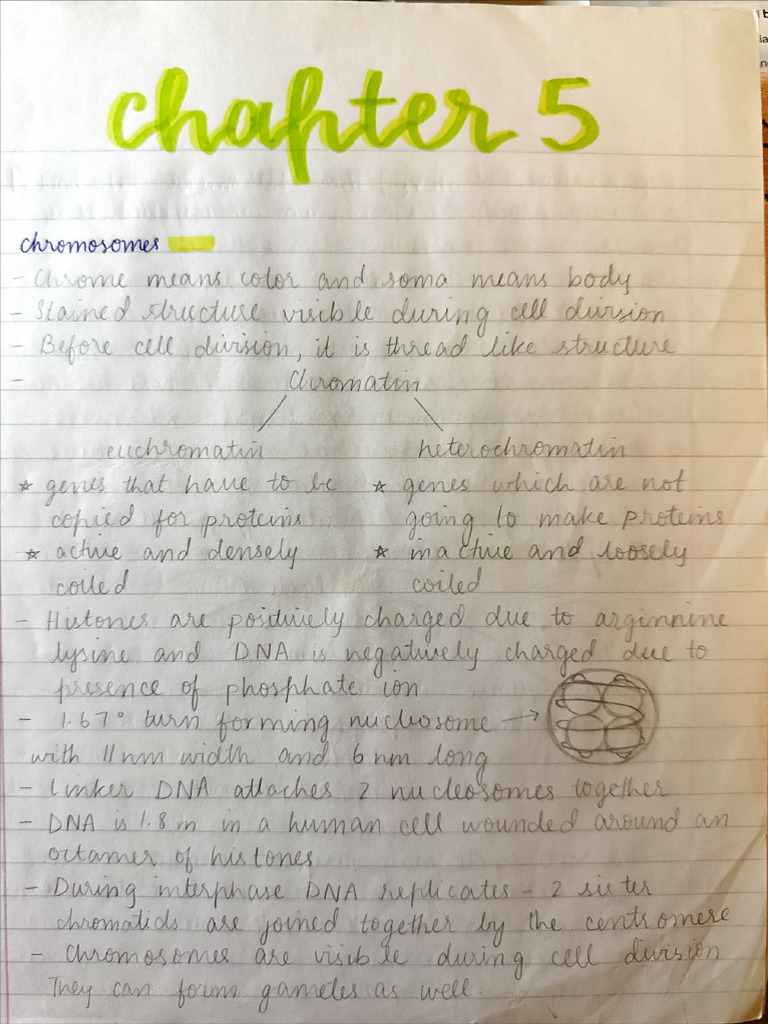 chapter 5
chromosomes
- Chrome means color and soma means body
- Stained structure visible during cell division
- Before cell division, it is thread like structure
- Chromatin
euchromatin heterochromatin
☆ genes that have to be ☆ genes which are not
copied for proteins going to make proteins
☆ active and densely ☆ inactive and loosely
coiled coiled
- Histones are positively charged due to arginnine
lysine and DNA is negatively charged due to
presence of phosphate ion
- 1.67° turn forming nucleosome →
with 11nm width and 6nm long
- Linker DNA attaches 2 nucleosomes together
- DNA is 1.8 m in a human cell wounded around an
octamer of histones
- During interphase DNA replicates - 2 sister
chromatids are joined together by the centromere
- Chromosomes are visible during cell division
They can form gametes as well.